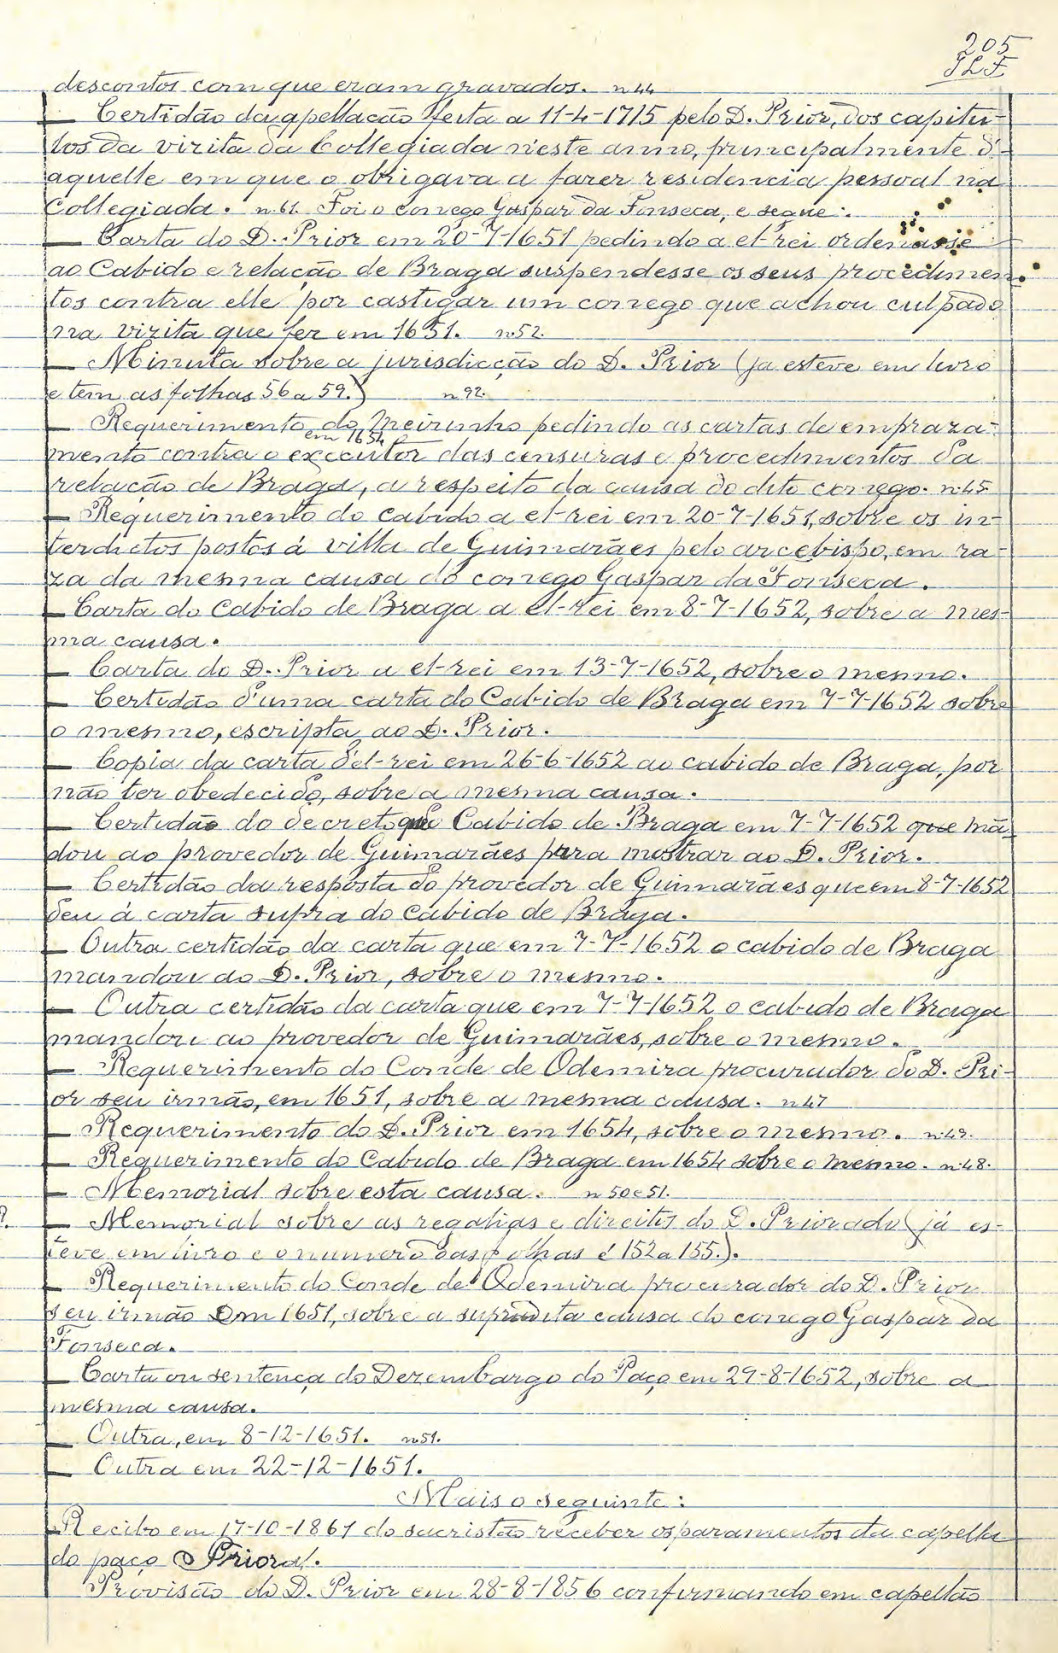 205
JLF
descontos com que eram gravados. nº44
— Certidão da apellação feita a 11-4-1715 pelo D. Prior, dos capitu-
los da vizita da Collegiada n'este anno, principalmente d'-
aquelle em que o obrigava a fazer residencia pessoal na
Collegiada. nº61. Foi o conego Gaspar da Fonseca, e segue:
— Carta do D. Prior em 20-7-1651 pedindo a el-rei ordenasse
ao Cabido e relação de Braga suspendesse os seus procedimen-
tos contra elle por castigar um conego que achou culpado
na vizita que fez em 1651. nº52.
— Minuta sobre a jurisdicção do D. Prior (ja esteve em livro
e tem as folhas 56 a 59.) nº92.
— Requerimento do Meirinho pedindo as cartas de empraza-
em 1654
mento contra o executor das censuras e procedimentos da
relação de Braga, a respeito da causa do dito conego. nº45
— Requerimento do cabido a el-rei em 20-7-1651, sobre os in-
terdictos postos á villa de Guimarães pelo arcebispo, em ra-
za da mesma causa do conego Gaspar da Fonseca.
— Carta do Cabido de Braga a el-rei em 8-7-1652, sobre a mes-
ma causa.
— Carta do D. Prior a el-rei em 13-7-1652, sobre o mesmo.
— Certidão d'uma carta do Cabido de Braga em 7-7-1652 sobre
o mesmo, escripta ao D. Prior.
— Copia da carta d'el-rei em 26-6-1652 ao cabido de Braga, por
não ter obedecido, sobre a mesma causa.
— Certidão do decreto que Cabido de Braga em 7-7-1652 que mã
dou ao provedor de Guimarães para mostrar ao D. Prior.
— Certidão da resposta do provedor de Guimarães que em 8-7-1652
deu á carta supra do cabido de Braga.
— Outra certidão da carta que em 7-7-1652 o cabido de Braga
mandou ao D. Prior, sobre o mesmo.
— Outra certidão da carta que em 7-7-1652 o cabido de Braga
mandou ao provedor de Guimarães, sobre o mesmo.
— Requerimento do Conde de Odemira procurador do D. Pri-
or seu irmão, em 1651, sobre a mesma causa. nº47
— Requerimento do D. Prior em 1654, sobre o mesmo. nº49.
— Requerimento do Cabido de Braga em 1654 sobre o mesmo. nº48.
— Memorial sobre esta causa. nº50 e 51.
— Memorial sobre as regalias e direitos do D. Priorado (já es-
teve em livro e o numero das folhas é 152 a 155.).
— Requerimento do Conde de Odemira procurador do D. Prior
seu irmão em 1651, sobre a supradita causa do conego Gaspar da
Fonseca.
— Carta ou sentença do Dezembargo do Paço em 29-8-1652, sobre a
mesma causa.
— Outra, em 8-12-1651. nº51.
— Outra em 22-12-1651.
Mais o seguinte:
Recibo em 17-10-1861 do sacristão receber os paramentos da capella
do paço Prioral.
Provisão do D. Prior em 28-8-1856 confirmando em capellão